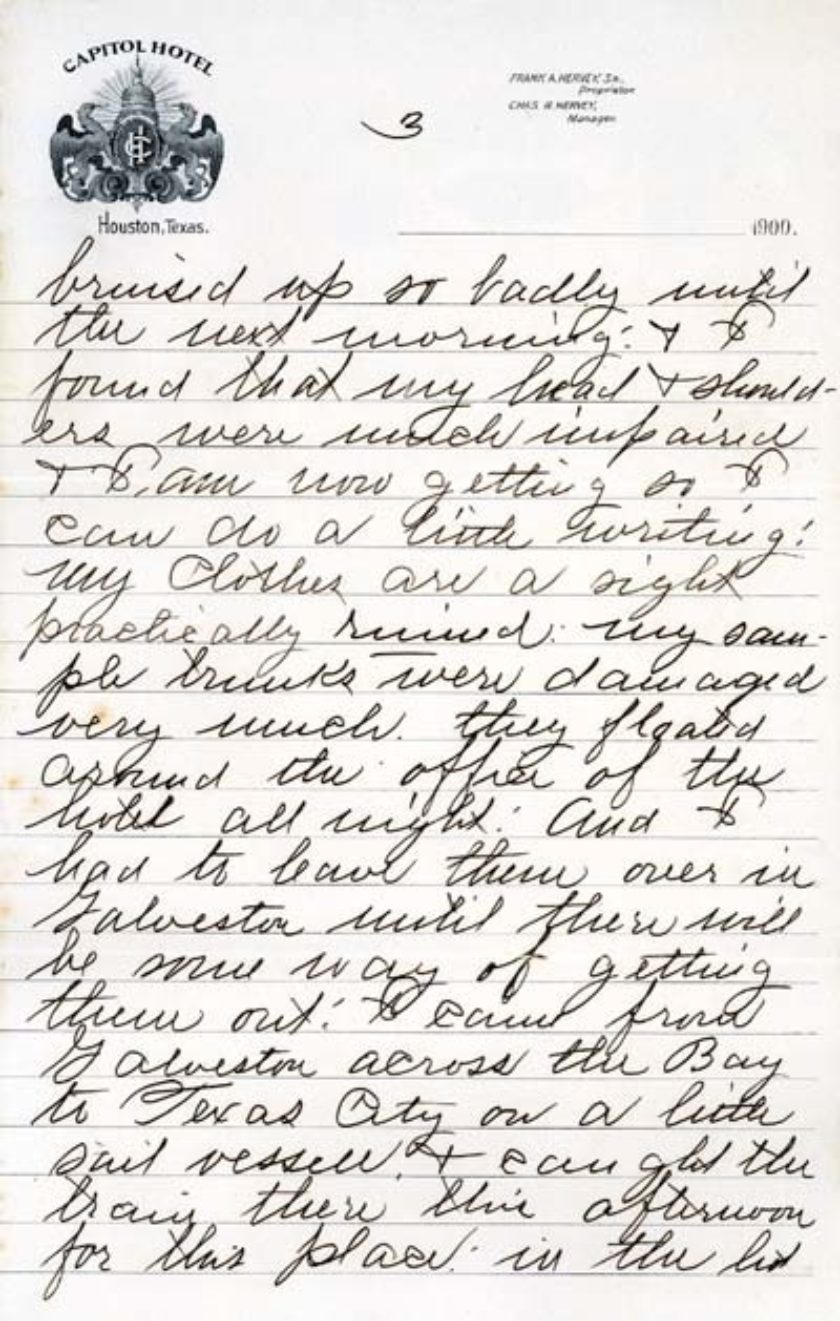 CAPITOL HOTEL
Houston, Texas.
3
FRANK A. HERVEY, Sr.,
Proprietor
CHAS. H. HERVEY,
Manager
1900.
bruised up so badly until
the next morning: & I
found that my head & should-
ers were much impaired
& I, am now getting so I
can do a little writing!
My Clothes are a sight
practically ruined: my sam-
ple trunks were damaged
very much. they floated
around the office of the
hotel all night: And I
had to leave them over in
Galveston until there will
be some way of getting
them out: I came from
Galveston across the Bay
to Texas City on a little
sail vessell, & caught the
train there this afternoon
for this place: in the